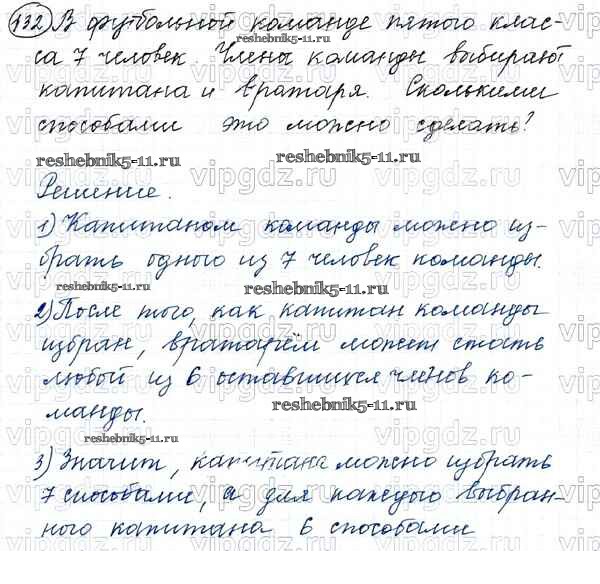 432) В футбольной команде пятого клас-
са 7 человек. Члены команды выбирают
капитана и вратаря. Сколькими
способами это можно сделать?
reshebnik5-11.ru
reshebnik5-11.ru
Решение.
1) Капитаном команды можно из-
брать одного из 7 человек команды.
reshebnik5-11.ru
2) После того, как капитан команды
избран, вратарём может стать
любой из 6 оставшихся членов ко-
манды.
reshebnik5-11.ru
reshebnik5-11.ru
3) Значит, капитана можно избрать
7 способами, а для каждого выбран-
ного капитана 6 способами
vipgdz.ru